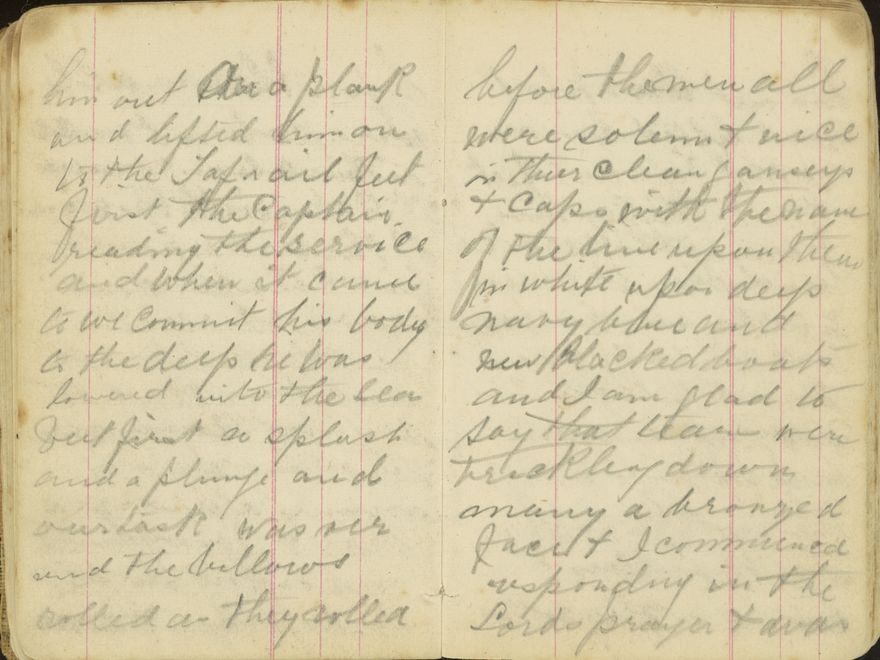 him out on a plank
and lifted him on
to the Tafrail feet
first the Captain
reading the service
and when it came
to we commit his body
to the deep he was
lowered into the sea
feet first a splash
and a plunge and
our task was over
and the billows
rolled as they rolled
before the men all
were solemn & nice
in their clean ganseys
& caps with the name
of the line upon them
in white upon deep
navy blue and
new blacked boots
and I am glad to
say that tears were
trickling down
many a bronzed
face & I commenced
responding in the
Lords prayer & was